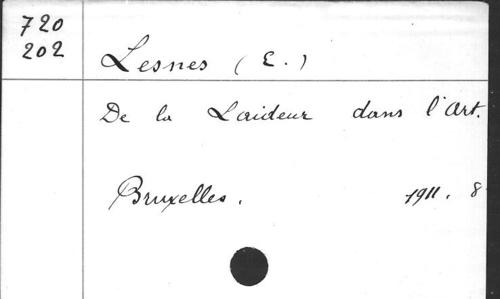 720
202
Lesnes (E.)
De la Laideur dans l'Art.
Bruxelles. 1911. 8